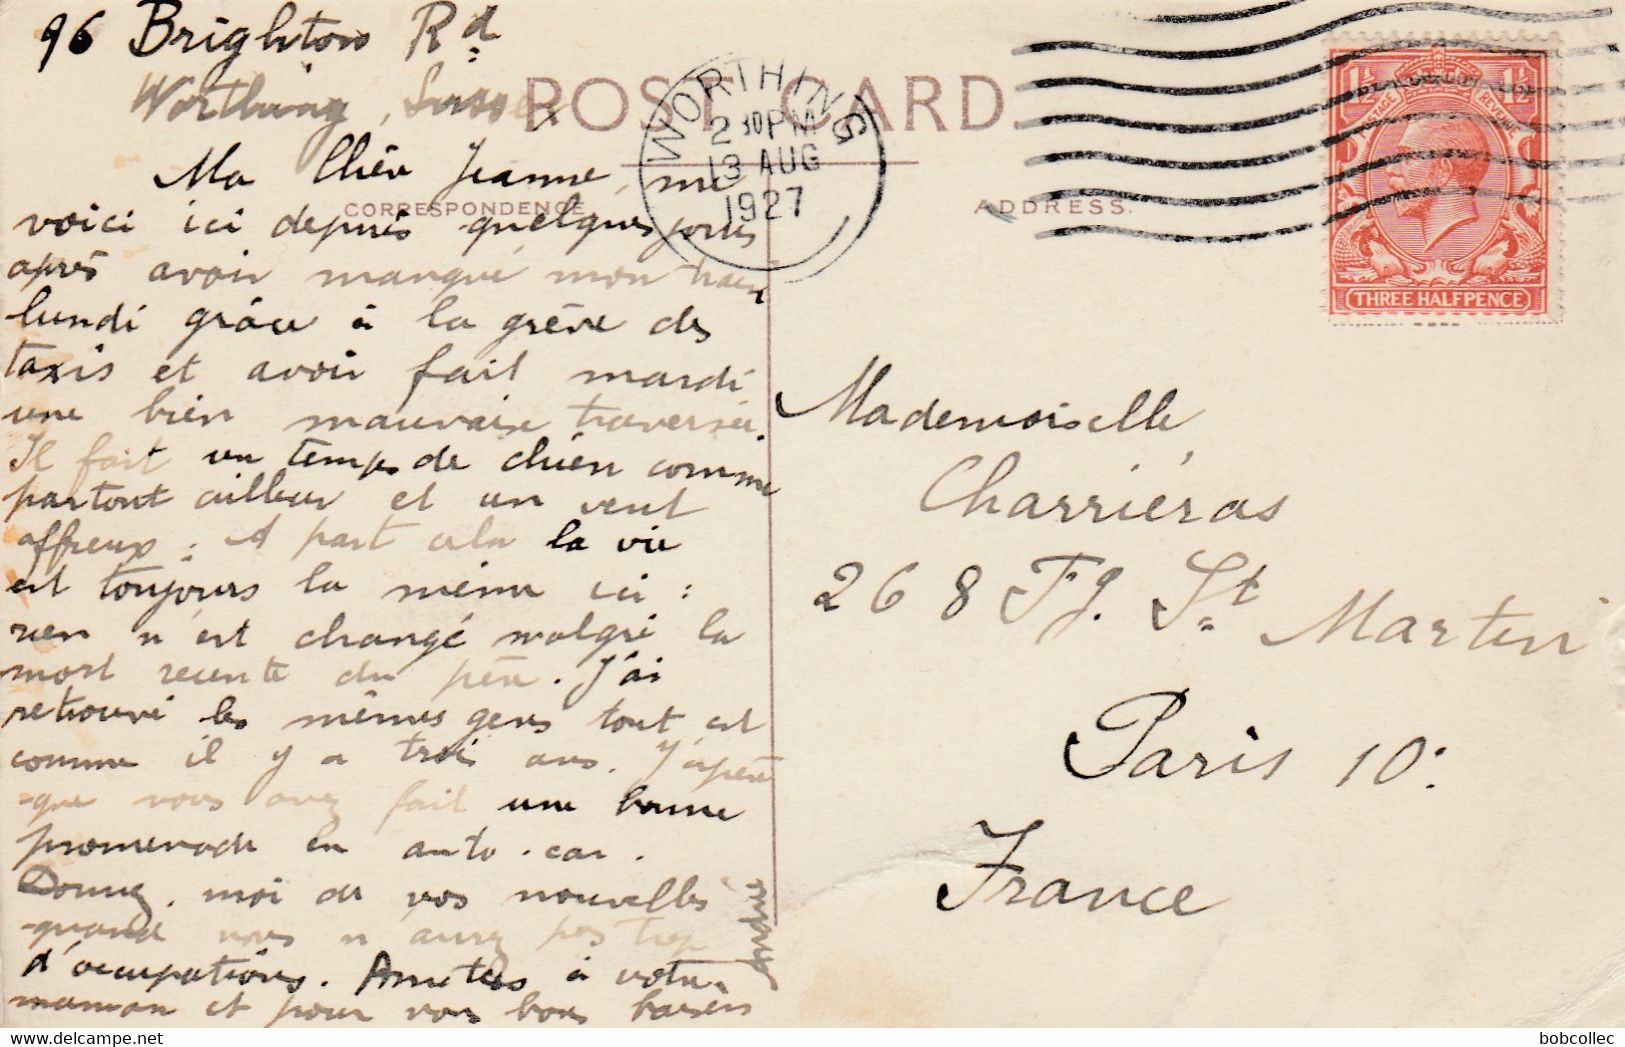 96 Brighton Rd
Worthing, Sussex
POST CARD
WORTHING
2 30 PM
13 AUG
1927
1½ 1½
POSTAGE REVENUE
THREE HALFPENCE
CORRESPONDENCE
ADDRESS.
Ma Chère Jeanne, me
voici ici depuis quelques jours
après avoir manqué mon train
lundi grâce à la grève des
taxis et avoir fait mardi
une bien mauvaise traversée.
Il fait un temps de chien comme
partout ailleur et un vent
affreux ; A part cela la vie
est toujours la même ici :
rien n'est changé malgré la
mort récente du père. J'ai
retrouvé les mêmes gens tout est
comme il y a trois ans. J'espère
que vous avez fait une bonne
promenade en auto-car.
Donnez-moi de vos nouvelles
quand vous n'aurez pas trop
d'occupations. Amitiés à votre
maman et pour vous bons baisers
Andrée
Mademoiselle
Charriéras
268 Fg. St Martin
Paris 10:
France
bobcollec